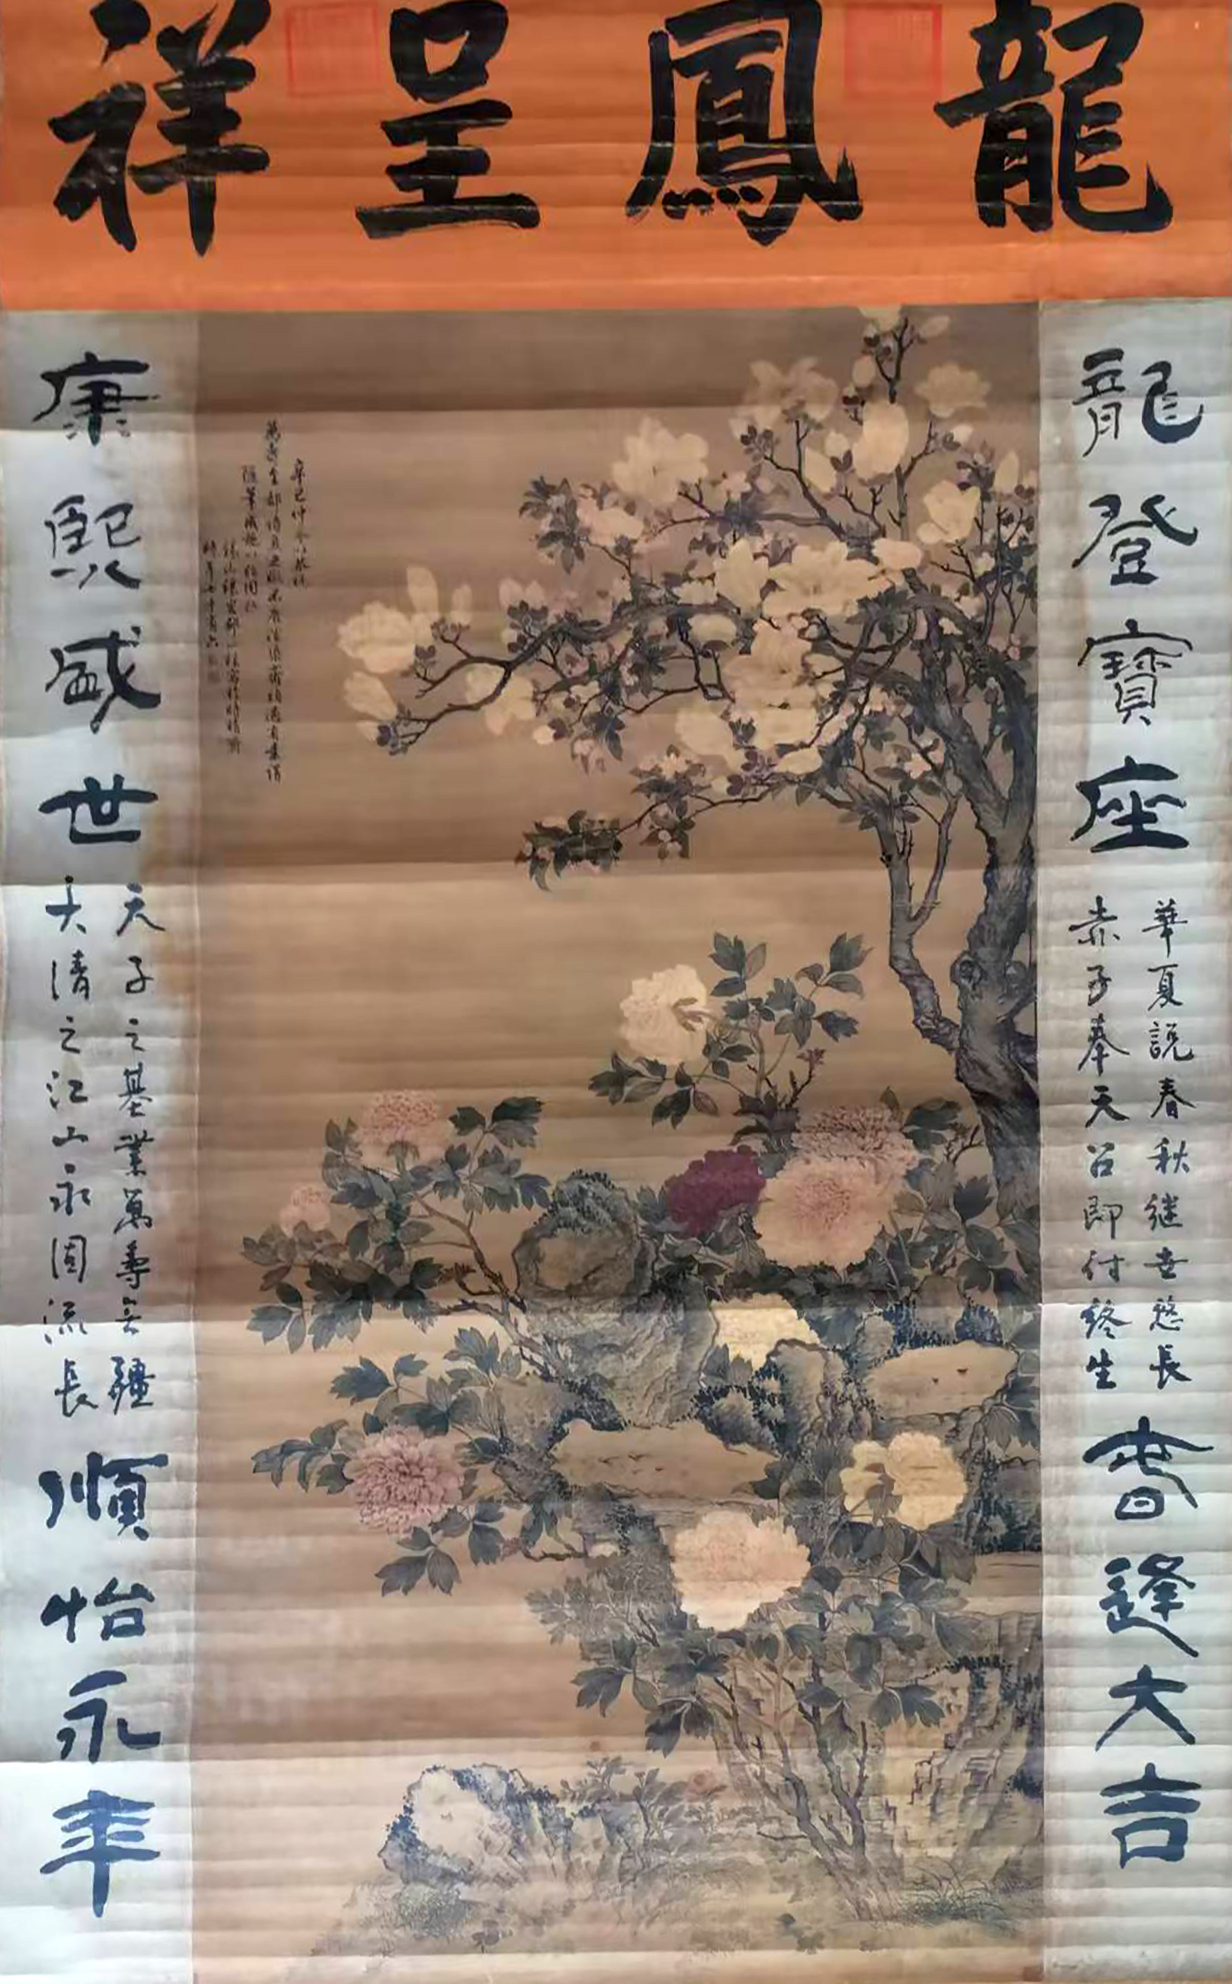 龍鳳呈祥
龍登寶座
華夏說春秋継世悠長
赤子奉天召即付終生
春逢大吉
辛巳仲冬
時年七十有六
康熙盛世
天子之基業萬壽無疆
大清之江山永固流長
順怡永年